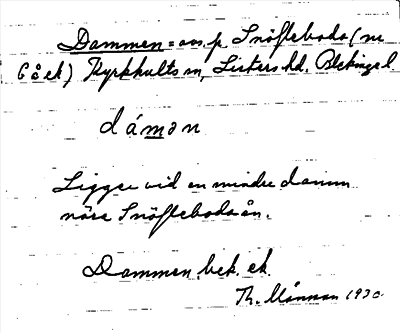 Dammen = avs. p. Snöfleboda (nr
6 ä ek) Kyrkhults sn, Listers hd. Blekinge l
dámən
Ligger vid en mindre damm
nära Snöflebodaån.
Dammen, bek. ek.
Th. Månsson 1930